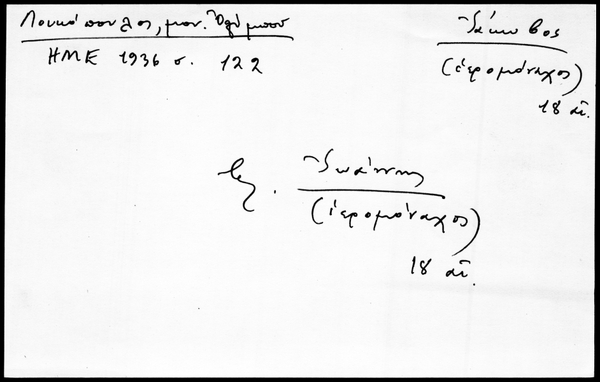 Λουκόπουλος, μον. Ὀλύμπου
ΗΜΕ 1936 σ. 122
Ἰάκωβος
(ἱερομόναχος)
18 αἰ.
Ἰωάννης
(ἱερομόναχος)
18 αἰ.